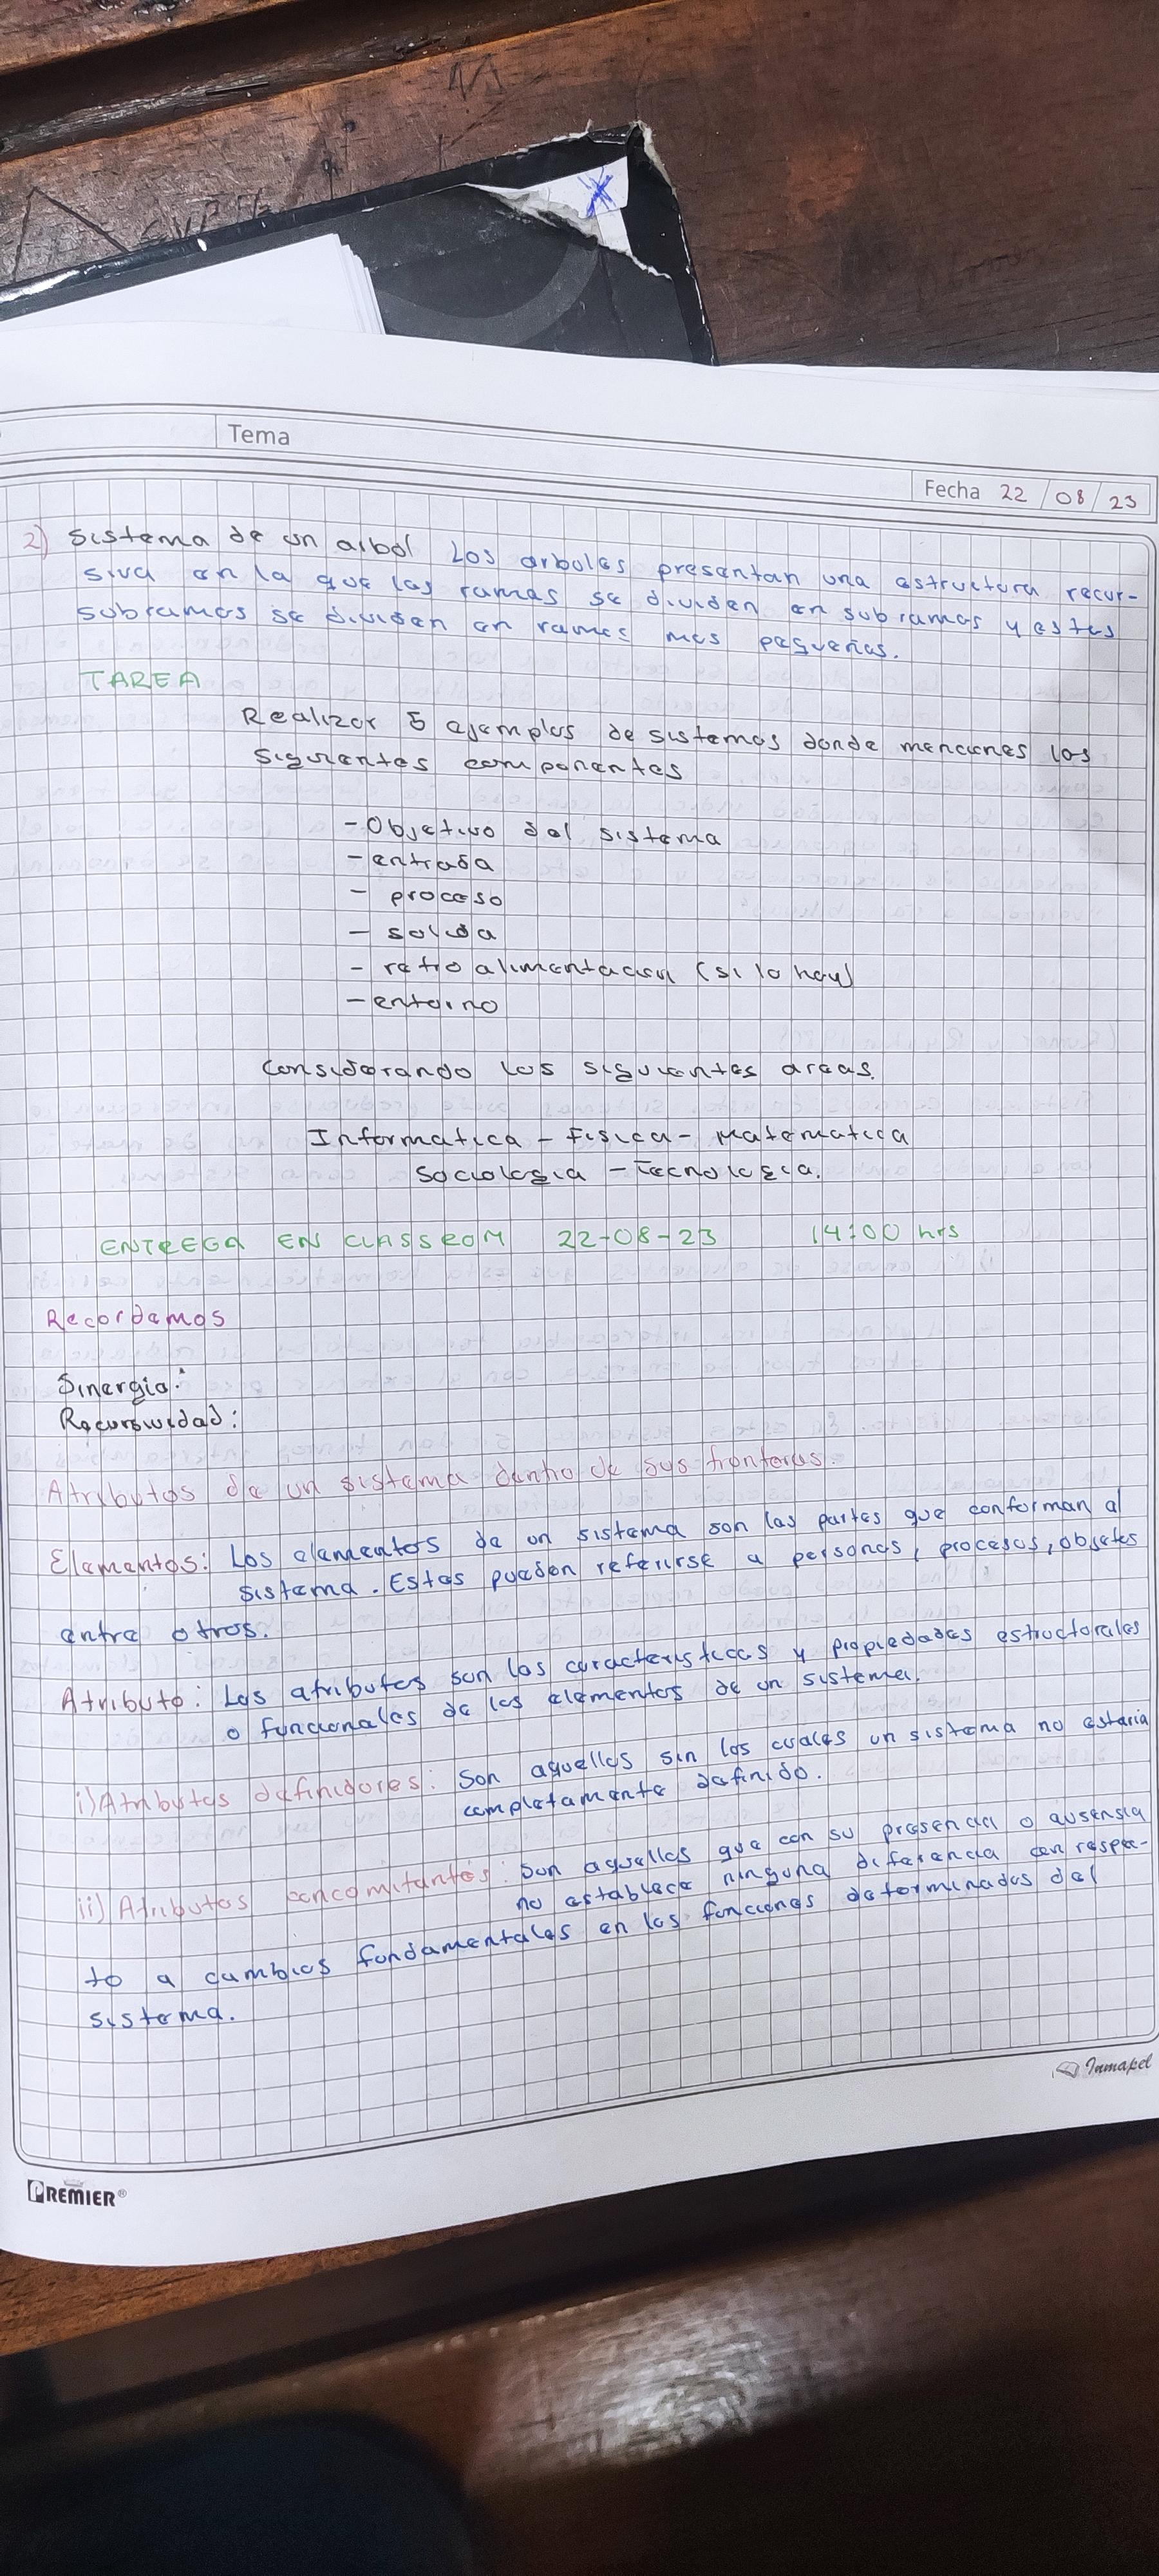 Tema
Fecha 22 / 08 / 23
2) Sistema de un arbol Los arboles presentan una estructura recur-
siva en la que las ramas se dividen en subramas y estas
subramas se dividen en ramas mas pequeñas.
TAREA
Realizar 5 ejemplos de sistemas donde menciones los
siguientes componentes
- Objetivo del sistema
- entrada
- proceso
- salida
- retro alimentacion (si lo hay)
- entorno
Considerando los siguientes areas.
Informatica - Fisica - Matematica
Sociologia - Tecnologia.
ENTREGA EN CLASSROM 22-08-23 14:00 hrs
Recordamos
Sinergia:
Recursividad:
Atributos de un sistema dentro de sus fronteras.
Elementos: Los elementos de un sistema son las partes que conforman al
sistema. Estas pueden referirse a personas, procesos, objetos
entre otros.
Atributo: Los atributos son las caracteristicas y propiedades estructurales
o funcionales de los elementos de un sistema.
i) Atributos definidores: Son aquellos sin los cuales un sistema no estaria
completamente definido.
ii) Atributos concomitantes: Son aquellos que con su presencia o ausensia
no establece ninguna diferencia con respec-
to a cambios fundamentales en las funciones determinadas del
sistema.
Inmapel
PREMIER®